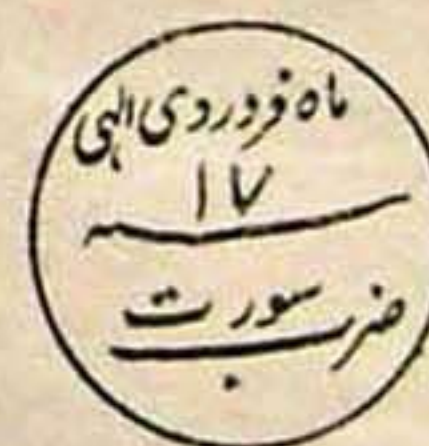 ماه فروردی الهی
۱۷
سنه
ضرب سورت